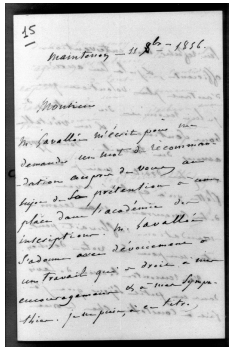 15
Maintenon - 11 8bre - 1856.
Monsieur
M. Lavallée m'écrit pour me
demander un mot de recomman
dation auprès de vous, au
sujet de sa prétention à une
place dans l'académie des
inscriptions. M. Lavallée
s'adonne avec dévouement à
un travail qui a droit à mes
encouragemens et à mes sympa-
thies. je ne puis, à ce titre,